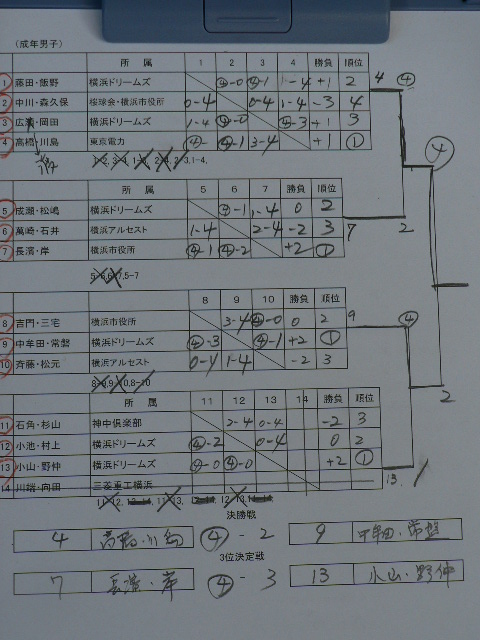 (成年男子)
所属 1 2 3 4 勝負 順位
1 藤田・飯野 横浜ドリームズ ④-0 ④-1 1-4 +1 2
2 中川・森久保 桜球会・横浜市役所 0-4 0-4 1-4 -3 4
3 広瀬・岡田 横浜ドリームズ 1-4 ④-0 ④-3 +1 3
4 高橋・川島 東京電力 ④-1 3-4 +1 ①
4 ④
④
所属 5 6 7 勝負 順位
5 成瀬・松嶋 横浜ドリームズ ④-1 1-4 0 2
6 萬崎・石井 横浜アルセスト 1-4 2-4 -2 3
7 長濱・岸 横浜市役所 ④-1 ④-2 +2 ①
7 2
所属 8 9 10 勝負 順位
8 吉門・三宅 横浜市役所 3-4 ④-0 0 2
9 中牟田・常磐 横浜ドリームズ ④-3 ④-1 +2 ①
10 斉藤・松元 横浜アルセスト 0-4 1-4 -2 3
9 ④
2
所属 11 12 13 14 勝負 順位
11 石角・杉山 神中倶楽部 2-4 0-4 -2 3
12 小池・村上 横浜ドリームズ ④-2 0-4 0 2
13 小山・野仲 横浜ドリームズ ④-0 ④-0 +2 ①
14 川端・向田 三菱重工横浜
13 1
決勝戦
4 高橋・川島 ④-2 9 中牟田・常盤
3位決定戦
7 長濱・岸 ④-3 13 小山・野仲